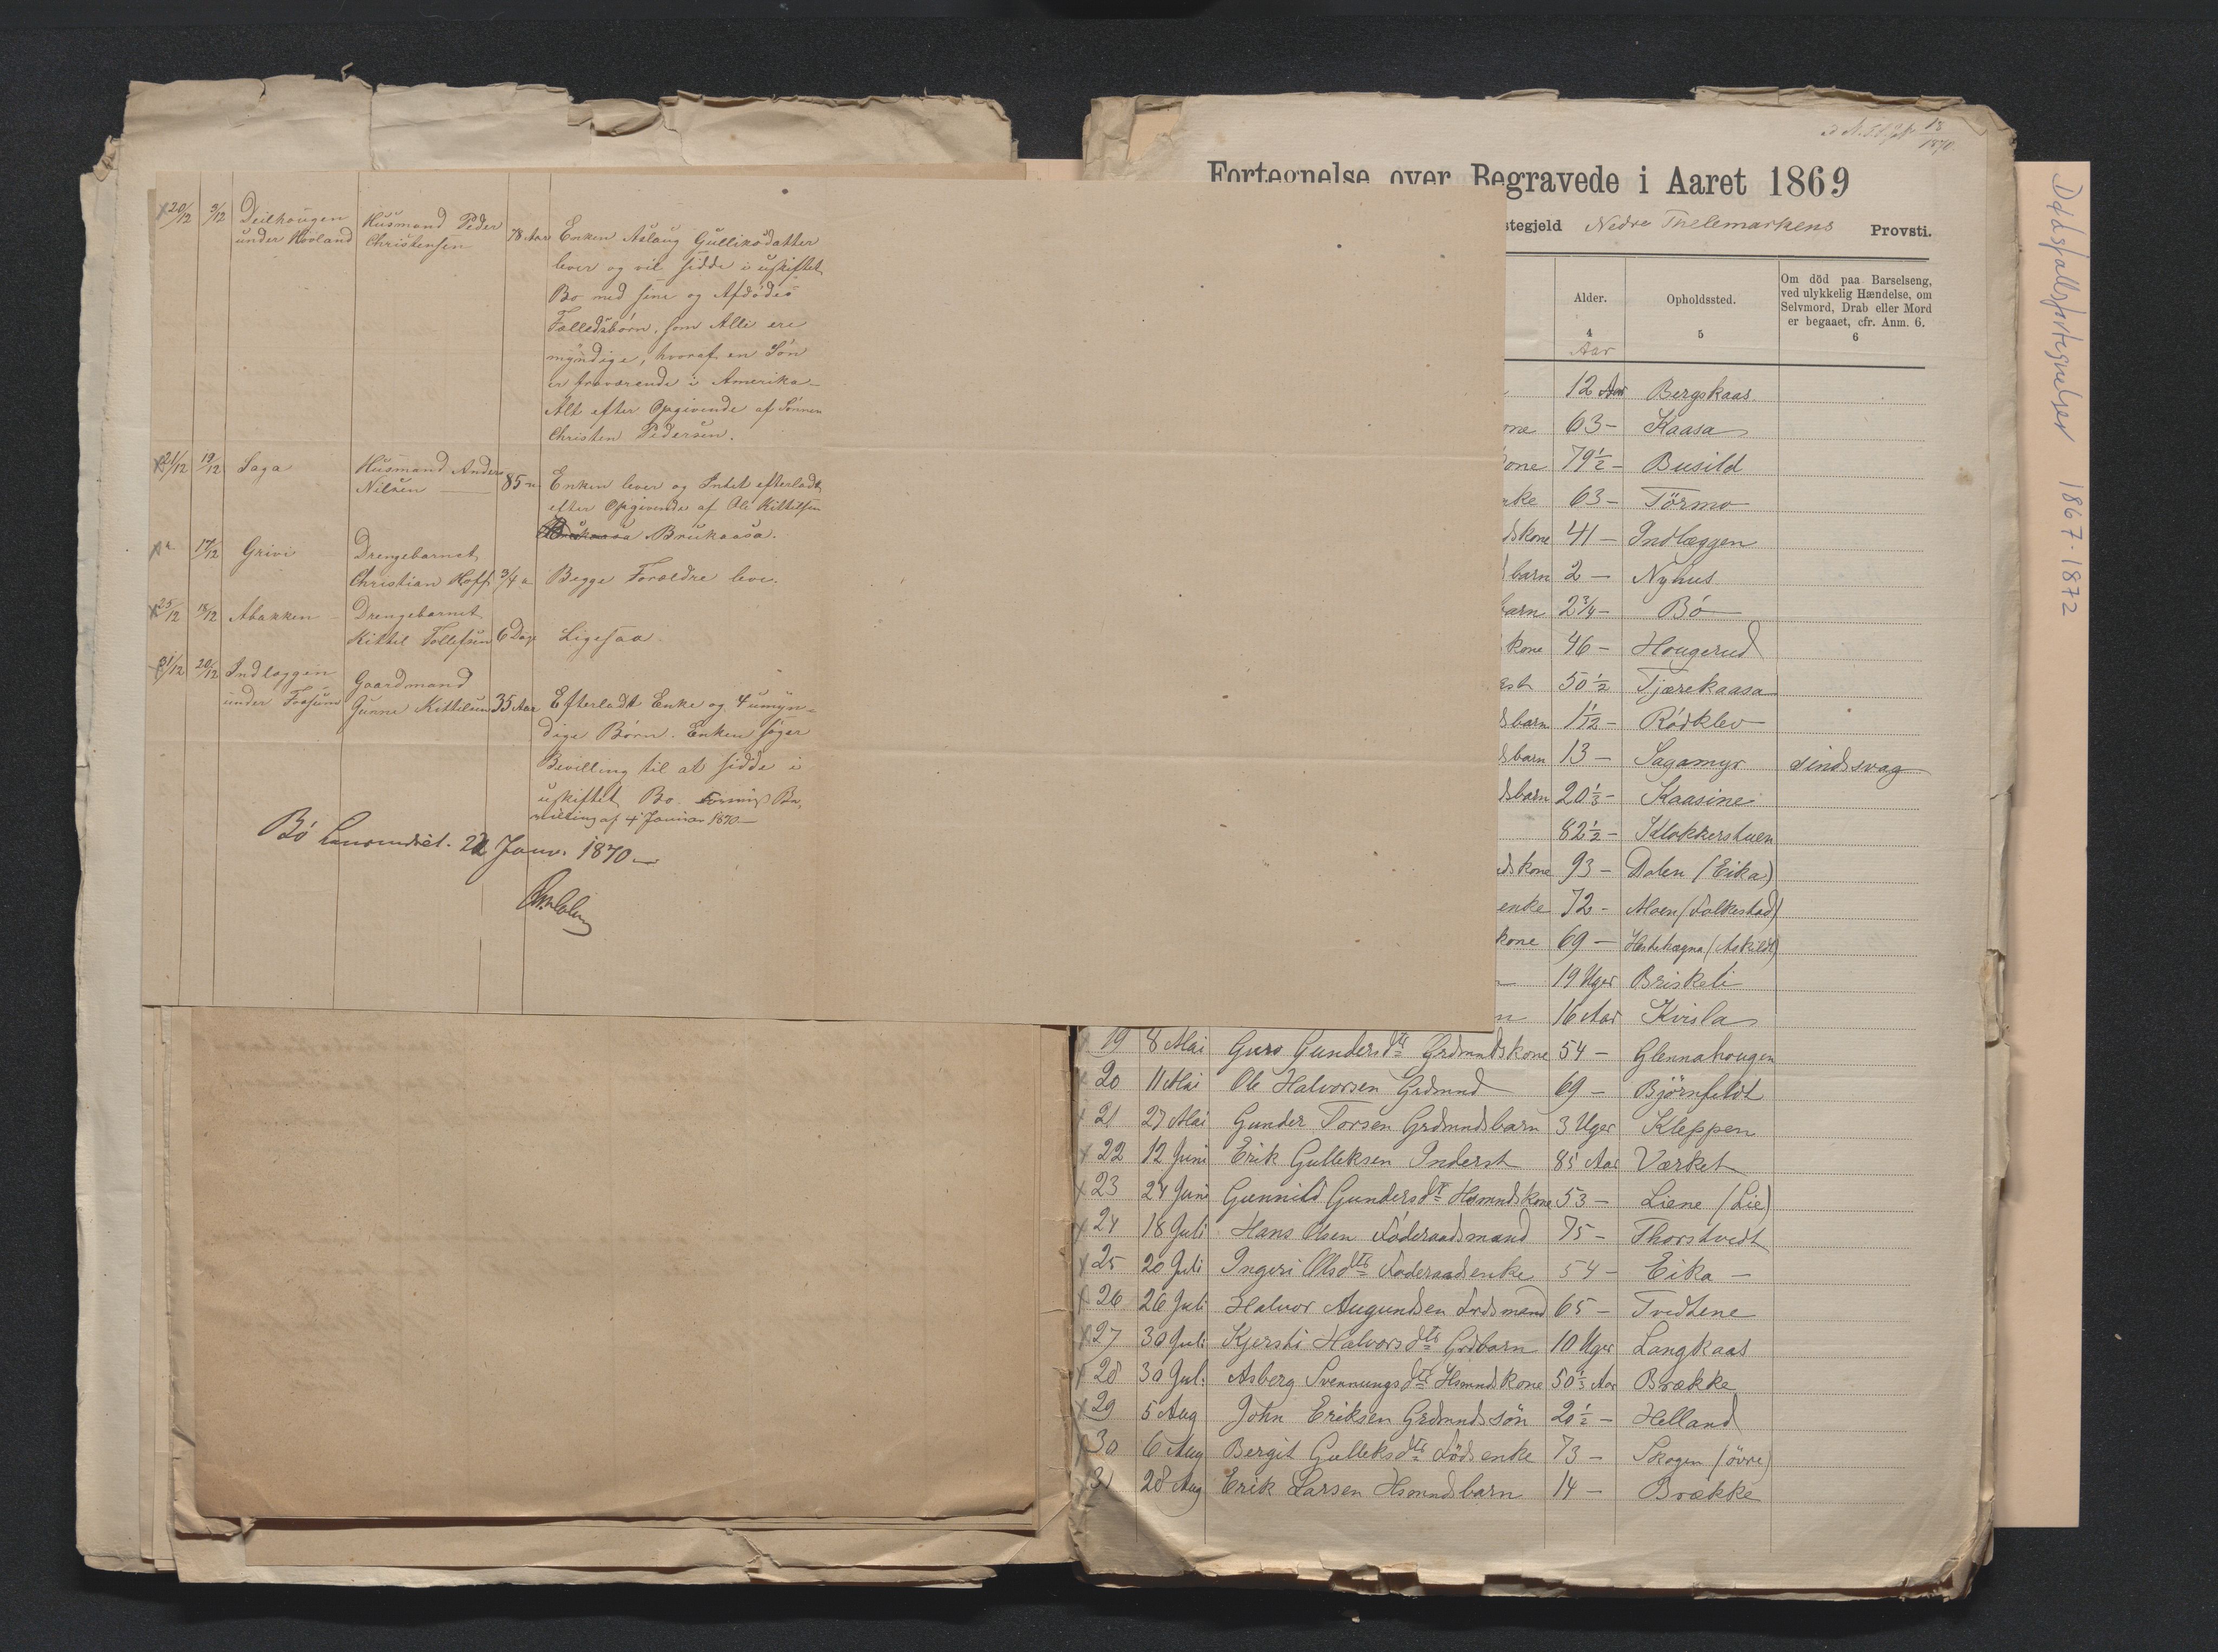 20/12 9/12 Deilhougen Husmand Peder 78 Aar Enken Aslaug Gulliksdatter
under Hovland Christensen lever og vil sidde i uskiftet
Bo med sine og Afdødes
Fælledsbørn, som Alle ere
myndige, hvoraf en Søn
er fraværende i Amerika
Alt efter Opgivende af Sønnen
Christen Pedersen.
21/12 19/12 Saga Husmand Anders 85 Enken lever og Intet efterladt
Nilsen efter Opgivende af Ole Kittilsen
Brukaasa.
17/12 Grivi Drengebarnet
Christian Hoff 3/4 Begge Forældre leve.
25/12 18/12 Abakken Drengebarnet
Kittil Tollefsen 6 Dage Ligesaa
31/12 20/12 Indlæggen Gaardmand
under Fossum Gunne Kittilsen 35 Aar Efterladt Enke og 4 umyn-
dige Børn. Enken søger
Bevilling til at sidde i
uskiftet Bo.
af 4 Januar 1870
Bö Januar 1870
18
1870
Fortegnelse over Begravede i Aaret 1869
stegjeld Nedre Thelemarkens Provsti.
Alder. Opholdssted. Om död paa Barselseng,
ved ulykkelig Hændelse, om
Selvmord, Drab eller Mord
er begaaet, cfr. Anm. 6.
4 5 6
Aar
12 Aar Bergskaas
one 63 - Kaasa
kone 79 1/2 - Busild
nke 63 - Törmo
dskone 41 - Indlæggen
barn 2 - Nyhus
barn 2 3/4 - Bö
kone 46 - Hougerud
50 1/2 Tjærekaasa
dsbarn 1 1/2 - Rödklev
dsbarn 13 - Sagamyr sindssvag
dsbarn 20 1/3 - Kaasine
82 1/2 - Klokkerstuen
dskone 93 - Dalen (Eika)
enke 72 - Moen (Folkestad)
kone 69 - Hestehagna (Askildt)
19 Uger Briskeli
n 16 Aar Kvisla
19 8 Mai Guro Gundersdtr Grdmndskone 54 - Glennahougen
20 11 Mai Ole Halvorsen Grdmnd 69 - Björnfeldt
21 27 Mai Gunder Torsen Grdmndsbarn 3 Uger Kleppen
22 12 Juni Erik Gulleksen Inderst 85 Aar Værket
23 24 Juni Gunnild Gundersdtr Hsmndskone 53 - Liene (Lie)
24 18 Juli Hans Olsen Föderaadsmand 75 - Thorstvedt
25 20 Juli Ingeri Olsdtr Föderaadsenke 54 - Eika -
26 26 Juli Halvor Augundsen Fodsmand 65 - Tvedtene
27 30 Juli Kjersti Halvorsdtr Grdbarn 10 Uger Langkaas
28 30 Jul. Asberg Svennungsdtr Hsmndskone 50 1/3 Aar Brække
29 5 Aug John Eriksen Grdmndssön 20 1/2 - Helland
30 6 Aug Bergit Gulleksdtr Födsenke 73 - Skogen (övre)
31 28 Aug Erik Larsen Hsmndsbarn 14 - Brække
Dødsfallsfortegnelser 1867-1872